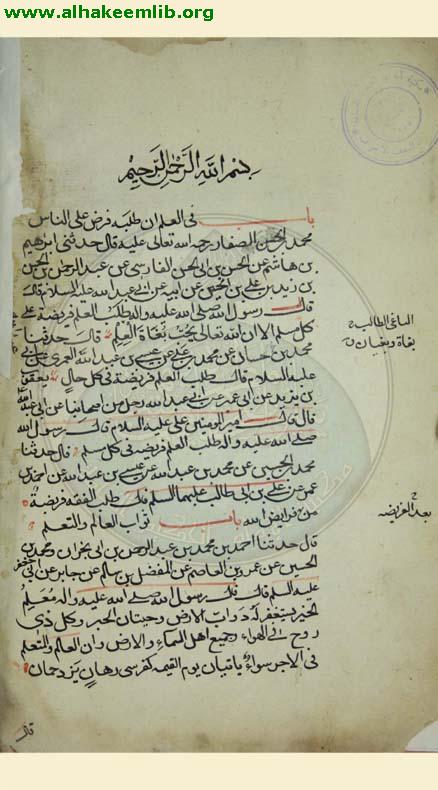 www.alhakeemlib.org
بسم الله الرحمن الرحيم
باب في العلم ان طلبه فرض على الناس
محمد بن الحسن الصفار رحمه الله تعالى عليه قال حدثنى ابرهيم
بن هاشم عن الحسن بن ابى الحسن الفارسى عن عبد الرحمن بن الحسن
بن زيد بن على بن الحسين عن ابيه عن ابى عبد الله عليه السلام قال
قال رسول الله صلى الله عليه واله طلب العلم فريضة على
كل مسلم الا ان الله تعالى يحب بغاة العلم قال حدثنا
محمد بن حسان عن محمد بن على عن عيسى بن عبد الله العمرى عن ابى
عليه السلام قال طلب العلم فريضة فى كل حال يعقوب
بن يزيد عن ابى عبد الله رجل من اصحابنا عن ابى عبد الله
قال قال امير المومنين على عليه السلام قال رسول الله
صلى الله عليه واله طلب العلم فريضة فى كل مسلم قال حدثنا
محمد بن الحسين عن محمد بن عبد الله عن عيسى بن عبد الله عن احمد بن
عمر عن على بن ابى طالب عليهما السلم قال طلب الفقه فريضة
من فرايض الله باب ثواب العالم والمتعلم
قال حدثنا احمد بن محمد بن عبد الرحمن بن ابى نجران ومحمد بن
الحسين عن عمرو بن العاصم عن المفضل بن سالم عن جابر عن ابى جعفر
عليه السلم قال قال رسول الله صلى الله عليه واله معلم
الخير يستغفر له دواب الارض وحيتان البحر وكل ذى
روح فى الهواء وجميع اهل السماء والارض وان العالم والمتعلم
فى الاجر سواء ياتيان يوم القيمه كفرسى رهان يزدحمان
قال
الباغى الطالب
بغاة وبغيان
بعد الفريضه